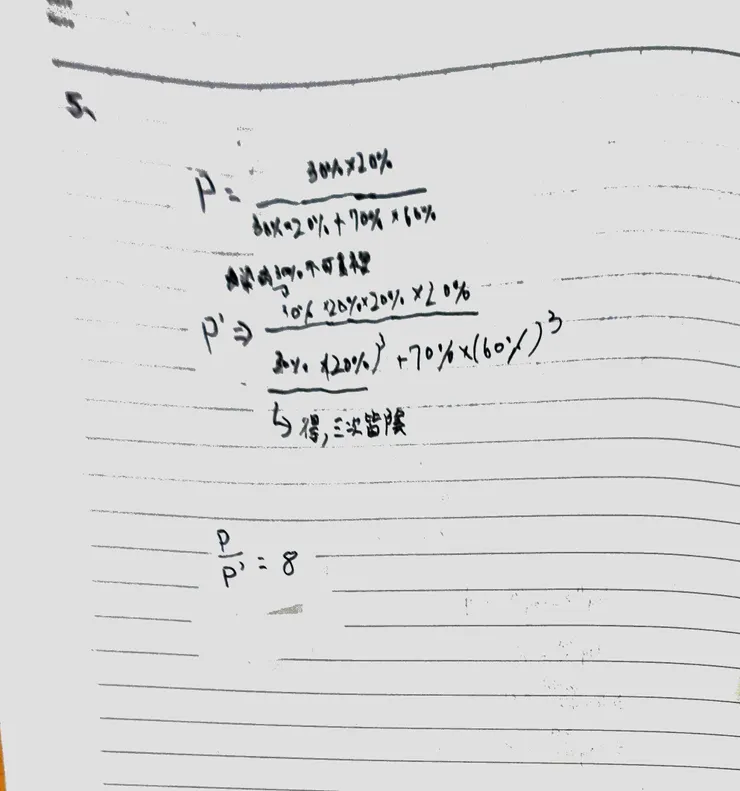 5、
P = 30%×20% / 30%×20% + 70%×60%
P' ⇒ 30%×20%×20%×20% / 30%×(20%)³ + 70%×(60%)³
↳ 得,三次皆陰
P / P' = 8